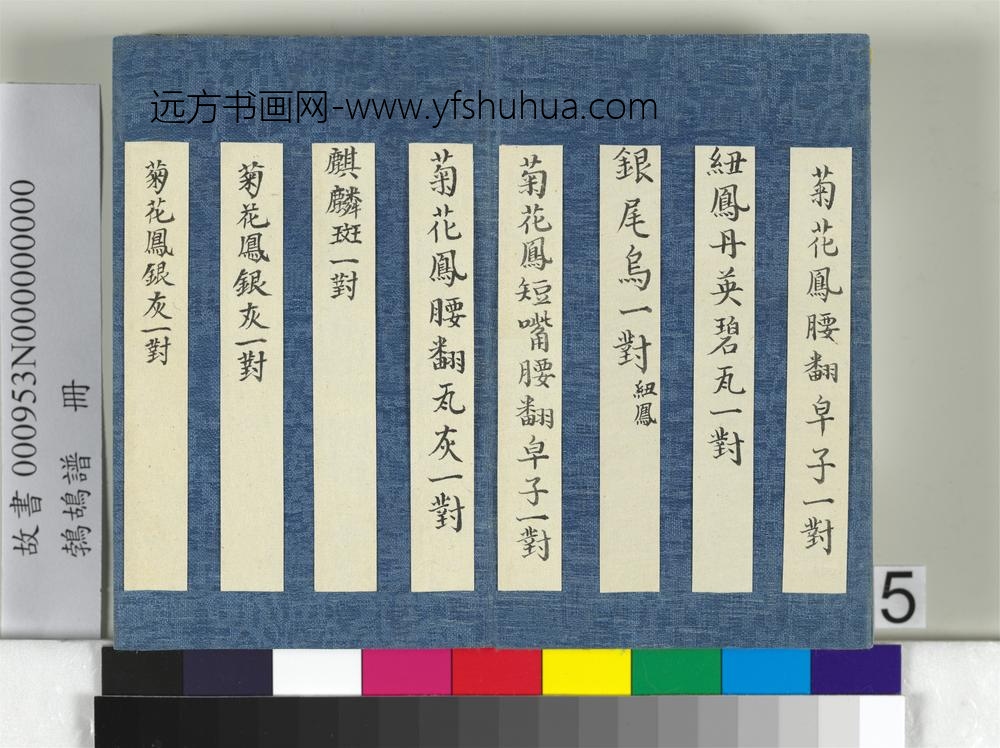 远方书画网-www.yfshuhua.com
菊花鳳腰翻皁子一對
紐鳳丹英碧瓦一對
銀尾烏一對
紐鳳
菊花鳳短嘴腰翻皁子一對
菊花鳳腰翻瓦灰一對
麒麟斑一對
菊花鳳銀灰一對
菊花鳳銀灰一對
故書 000953N000000000
鵓鴣譜 冊
5